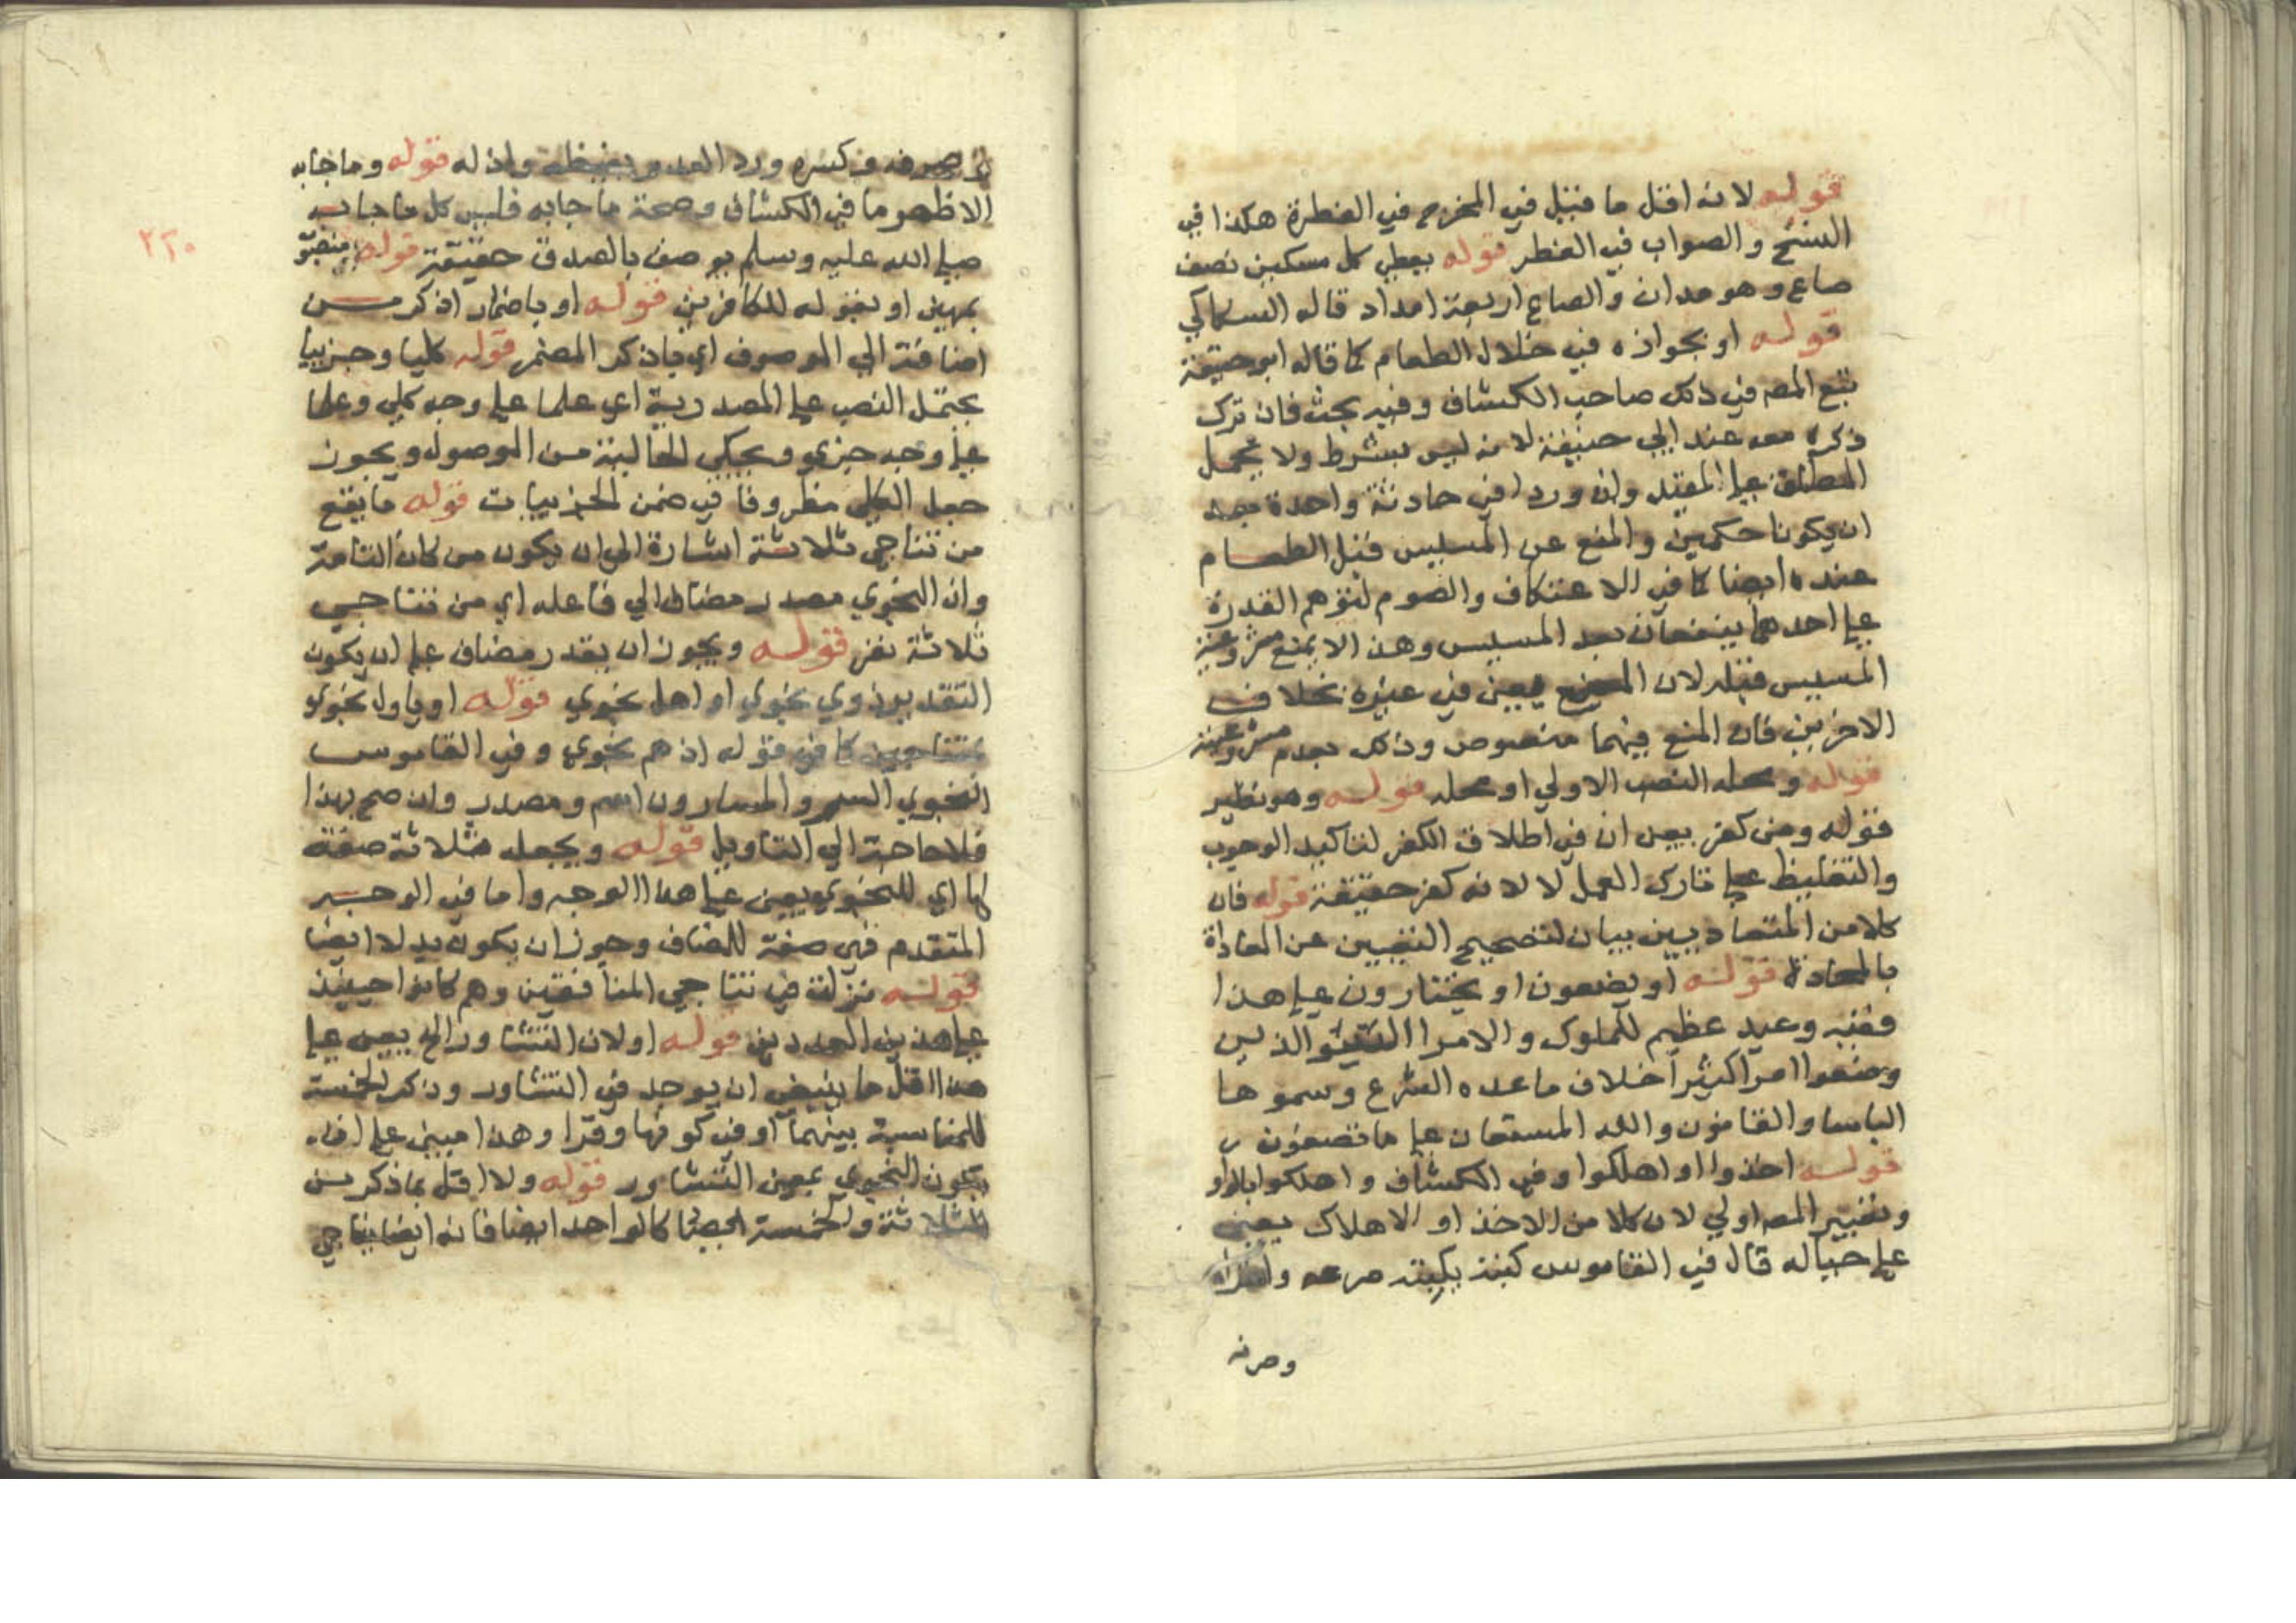 قوله لانه اقل ما قيل في المخرج في الفطرة هكذا في
النسخ والصواب في الفطر قوله يعطي كل مسكين نصف
صاع وهو مدان والصاع اربعة امداد قاله السكاكي
قوله او بجوازه في خلال الطعام كما قاله ابو حنيفة
تبع المصر في ذلك صاحب الكشاف وفيه بحث فان ترك
ذكره معه عند ابي حنيفة لانه ليس بشرط ولا يحمل
المطلق علي المقيد وان وردا في حادثة واحدة بعد
ان يكونا حكمين والمنع عن المسيس قبل الطعام
عنده ايضا كما في الاعتكاف والصوم لتوهم القدرة
علي احدهما فينفعان بعد المسيس وهذا لا يمنع مشروعية
المسيس قبله لان المنع لمعين في غيره بخلاف
الاخرين فان المنع فيهما منصوص وذلك بعدم مشروعية
قوله ومحله النصب الاولي او محله قوله وهو نظير
قوله ومن كفر يعين ان في اطلاق الكفر لتاكيد الوجوب
والتغليظ علي تارك العمل لا لانه كفر حقيقة قوله فان
كلا من المتعاديين بيان لتصحيح التفسير عن المعاداة
بالمحادة قوله او يضعون او يختارون علي هذا
ففيه وعيد عظيم للملوك والامرا السوء الذين
وضعوا امرا كثيرا خلاف ما عده الشرع وسموها
الياسا والقانون والله المستعان علي ما تصفون
قوله اخذوا او اهلكوا وفي الكشاف واهلكوا بالواو
وتفسير المصر اولي لان كلا من الاخذ او الاهلاك يعني
علي حياله قال في القاموس كبته يكبته صرعه واخزاه
وصرفه
٢٢٠
وصرفه وكسره ورد العدو بغيظه واذله قوله وما جا به
الاظهر ما في الكشاف وصحة ما جا به فليس كل ما جا به
صلي الله عليه وسلم يوصف بالصدق حقيقة قوله منصوب
بمهين او بقوله للكافرين قوله او باضمار اذكر من
اضافة الي الموصوف اي باذكر المضمر قوله كليا وجزييا
يحتمل النصب علي المصدرية اي علما علي وجه كلي وعلما
علي وجه جزي ويحكي الحالية من الموصول ويجوز
جعل الكلي مظروفا في ضمن الجزييات قوله ما يقع
من تناجي ثلاثة اشارة الي ان يكون من كان التامة
وان النجوي مصدر مضاف الي فاعله اي من تناجي
ثلاثة نفر قوله ويجوز ان يقدر مضاف علي ان يكون
التقدير ذوي نجوي او اهل نجوي قوله او ياول نجوي
بمتناجين كما في قوله اذ هم نجوي وفي القاموس
النجوي السر والمسارون اسم ومصدر وان صح بهذا
فلا حاجة الي التاويل قوله ويجعل ثلاثة صفة
لها اي للنجوي يعني علي هذا الوجه واما في الوجه
المتقدم فهي صفة للمضاف وجوز ان يكون بدلا ايضا
قوله نزلت في تناجي المنافقين وهم كانوا حينيذ
علي هذين العددين قوله او لان التشاور الخ يعني علي
هذا اقل ما ينبغي ان يوجد في التشاور وذكر الخمسة
للمناسبة بينهما او في كونها وترا وهذا مبني علي ان
يكون النجوي بمعني التشاور قوله ولا اقل مما ذكر من
الثلاثة والخمسة كالواحد ايضا فانه ايضا يناجي